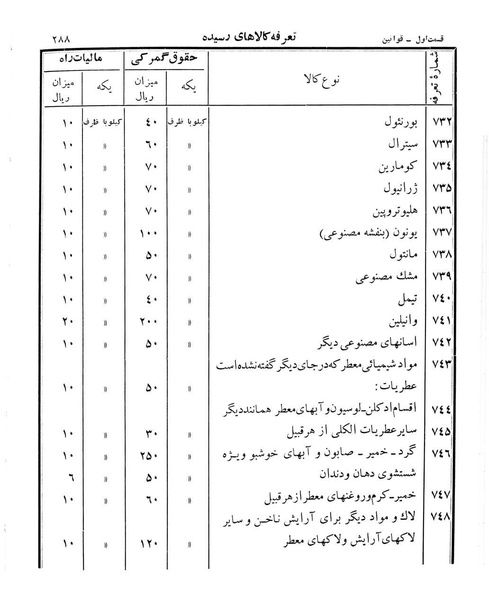 قسمت اول ـ قوانین تعرفه کالاهای رسیده ۲۸۸
شمارهٔ تعرفه نوع کالا حقوق گمرکی مالیات راه
یکه میزان ریال یکه میزان ریال
۷۳۲ بورنئول کیلو با ظرف ۴۰ کیلو با ظرف ۱۰
۷۳۳ سیترال » ۶۰ » ۱۰
۷۳٤ کومارین » ۷۰ » ۱۰
۷۳۵ ژرانیول » ۷۰ » ۱۰
۷۳۶ هلیوتروپین » ۷۰ » ۱۰
۷۳۷ یونون (بنفشه مصنوعی) » ۱۰۰ » ۱۰
۷۳۸ مانتول » ۵۰ » ۱۰
۷۳۹ مشك مصنوعی » ۷۰ » ۱۰
۷٤۰ تیمل » ٤۰ » ۱۰
۷٤۱ وانیلین » ۲۰۰ » ۲۰
۷٤۲ اسانهای مصنوعی دیگر » ۵۰ » ۱۰
۷٤۳ مواد شیمیائی معطر که در جای دیگر گفته نشده است
عطریات: » ۵۰ » ۱۰
۷٤٤ اقسام ادکلن ـ لوسیون و آبهای معطر همانند دیگر
۷٤۵ سایر عطریات الکلی از هر قبیل » ۳۰ » ۱۰
۷٤۶ گرد ـ خمیر ـ صابون و آبهای خوشبو ویژه » ۲۵۰ » ۱۰
شستشوی دهان و دندان » ۵۰ » ۶
۷٤۷ خمیر ـ کرم و روغنهای معطر از هر قبیل » ۶۰ » ۱۰
۷٤۸ لاك و مواد دیگر برای آرایش ناخن و سایر
لاکهای آرایش و لاکهای معطر » ۱۲۰ » ۱۰